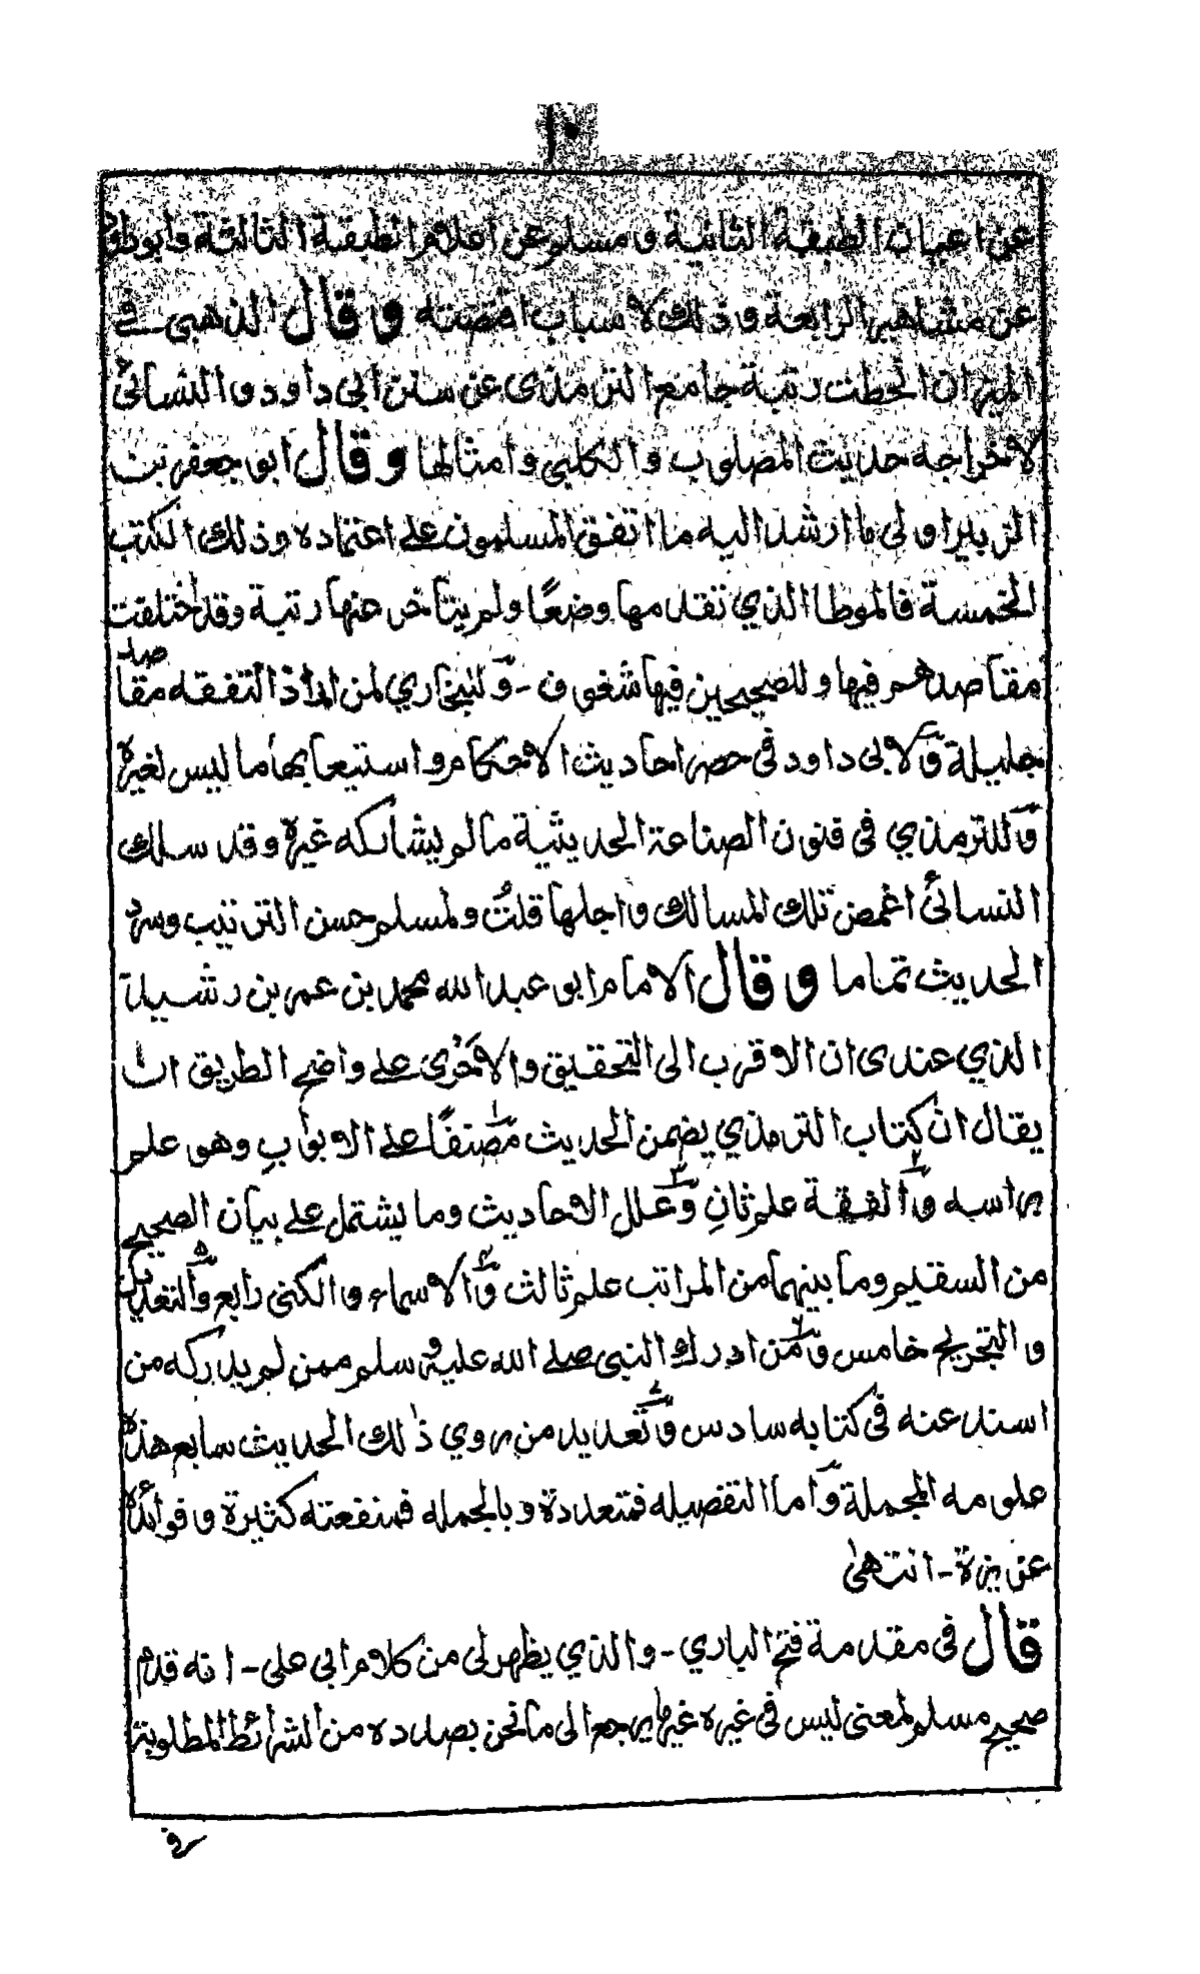 ١٠
عن اعيان الطبقة الثانية و مسلم عن اعلام الطبقة الثالثة وابوداود
عن مشاهير الرابعة و ذلك لاسباب اقتضته وقال الذهبي في
الميزان انحطت رتبة جامع الترمذى عن سنن ابي داود و النسائي
لاخراجه حديث المصلوب و الكلبي و امثالها وقال ابو جعفر بن
الزبير اولى ما ارشد اليه ما اتفق المسلمون على اعتماده و ذلك الكتب
الخمسة فالموطا الذي تقدمها وضعًا ولم يتاخر عنها رتبة وقد اختلفت
مقاصدهم فيها و للصحيحين فيها شغوف - وللبخاري لمن اراد التفقه مقاصد
جليلة و لابى داود فى حصر احاديث الاحكام و استيعابها ما ليس لغيره
و للترمذي فى فنون الصناعة الحديثية ما لم يشاركه غيره و قد سلك
النسائي اغمض تلك المسالك و اجلها قلت ولمسلم حسن الترتيب وسرد
الحديث تماما وقال الامام ابو عبد الله محمد بن عمر بن رشيد
الذي عندى ان الاقرب الى التحقيق والاحرى على واضح الطريق ان
يقال ان كتاب الترمذي يضمن الحديث مصنفًا على الابواب وهو علم
براسه و الفقة علم ثانٍ و علل الاحاديث وما يشتمل على بيان الصحيح
من السقيم و ما بينهما من المراتب علم ثالث و الاسماء و الكنى رابع و التعديل
و التجريح خامس و من ادرك النبى صلى الله عليه وسلم ممن لم يدركه من
اسند عنه فى كتابه سادس و تعديد من روي ذلك الحديث سابع هذه
علومه المجملة و اما التفصيله فمتعددة و بالجمله فمنفعته كثيرة و فوائده
عزيزة - انتهى
قال فى مقدمة فتح الباري - و الذي يظهر لى من كلام ابى على - انه قدم
صحيح مسلم لمعنى ليس فى غيره غير ما يرجع الى ما نحن بصدده من الشرائط المطلوبة
في